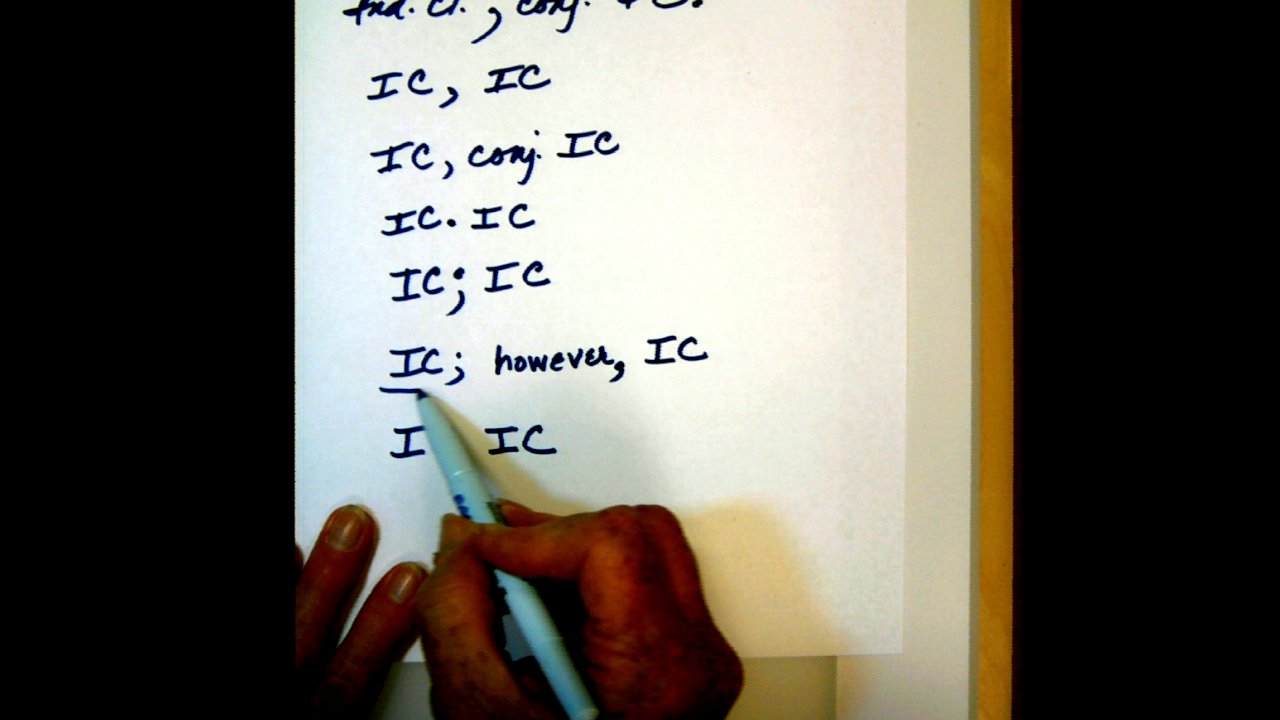 Ind. Cl., conj. + C.
IC, IC
IC, conj. IC
IC. IC
IC; IC
IC; however, IC
I IC